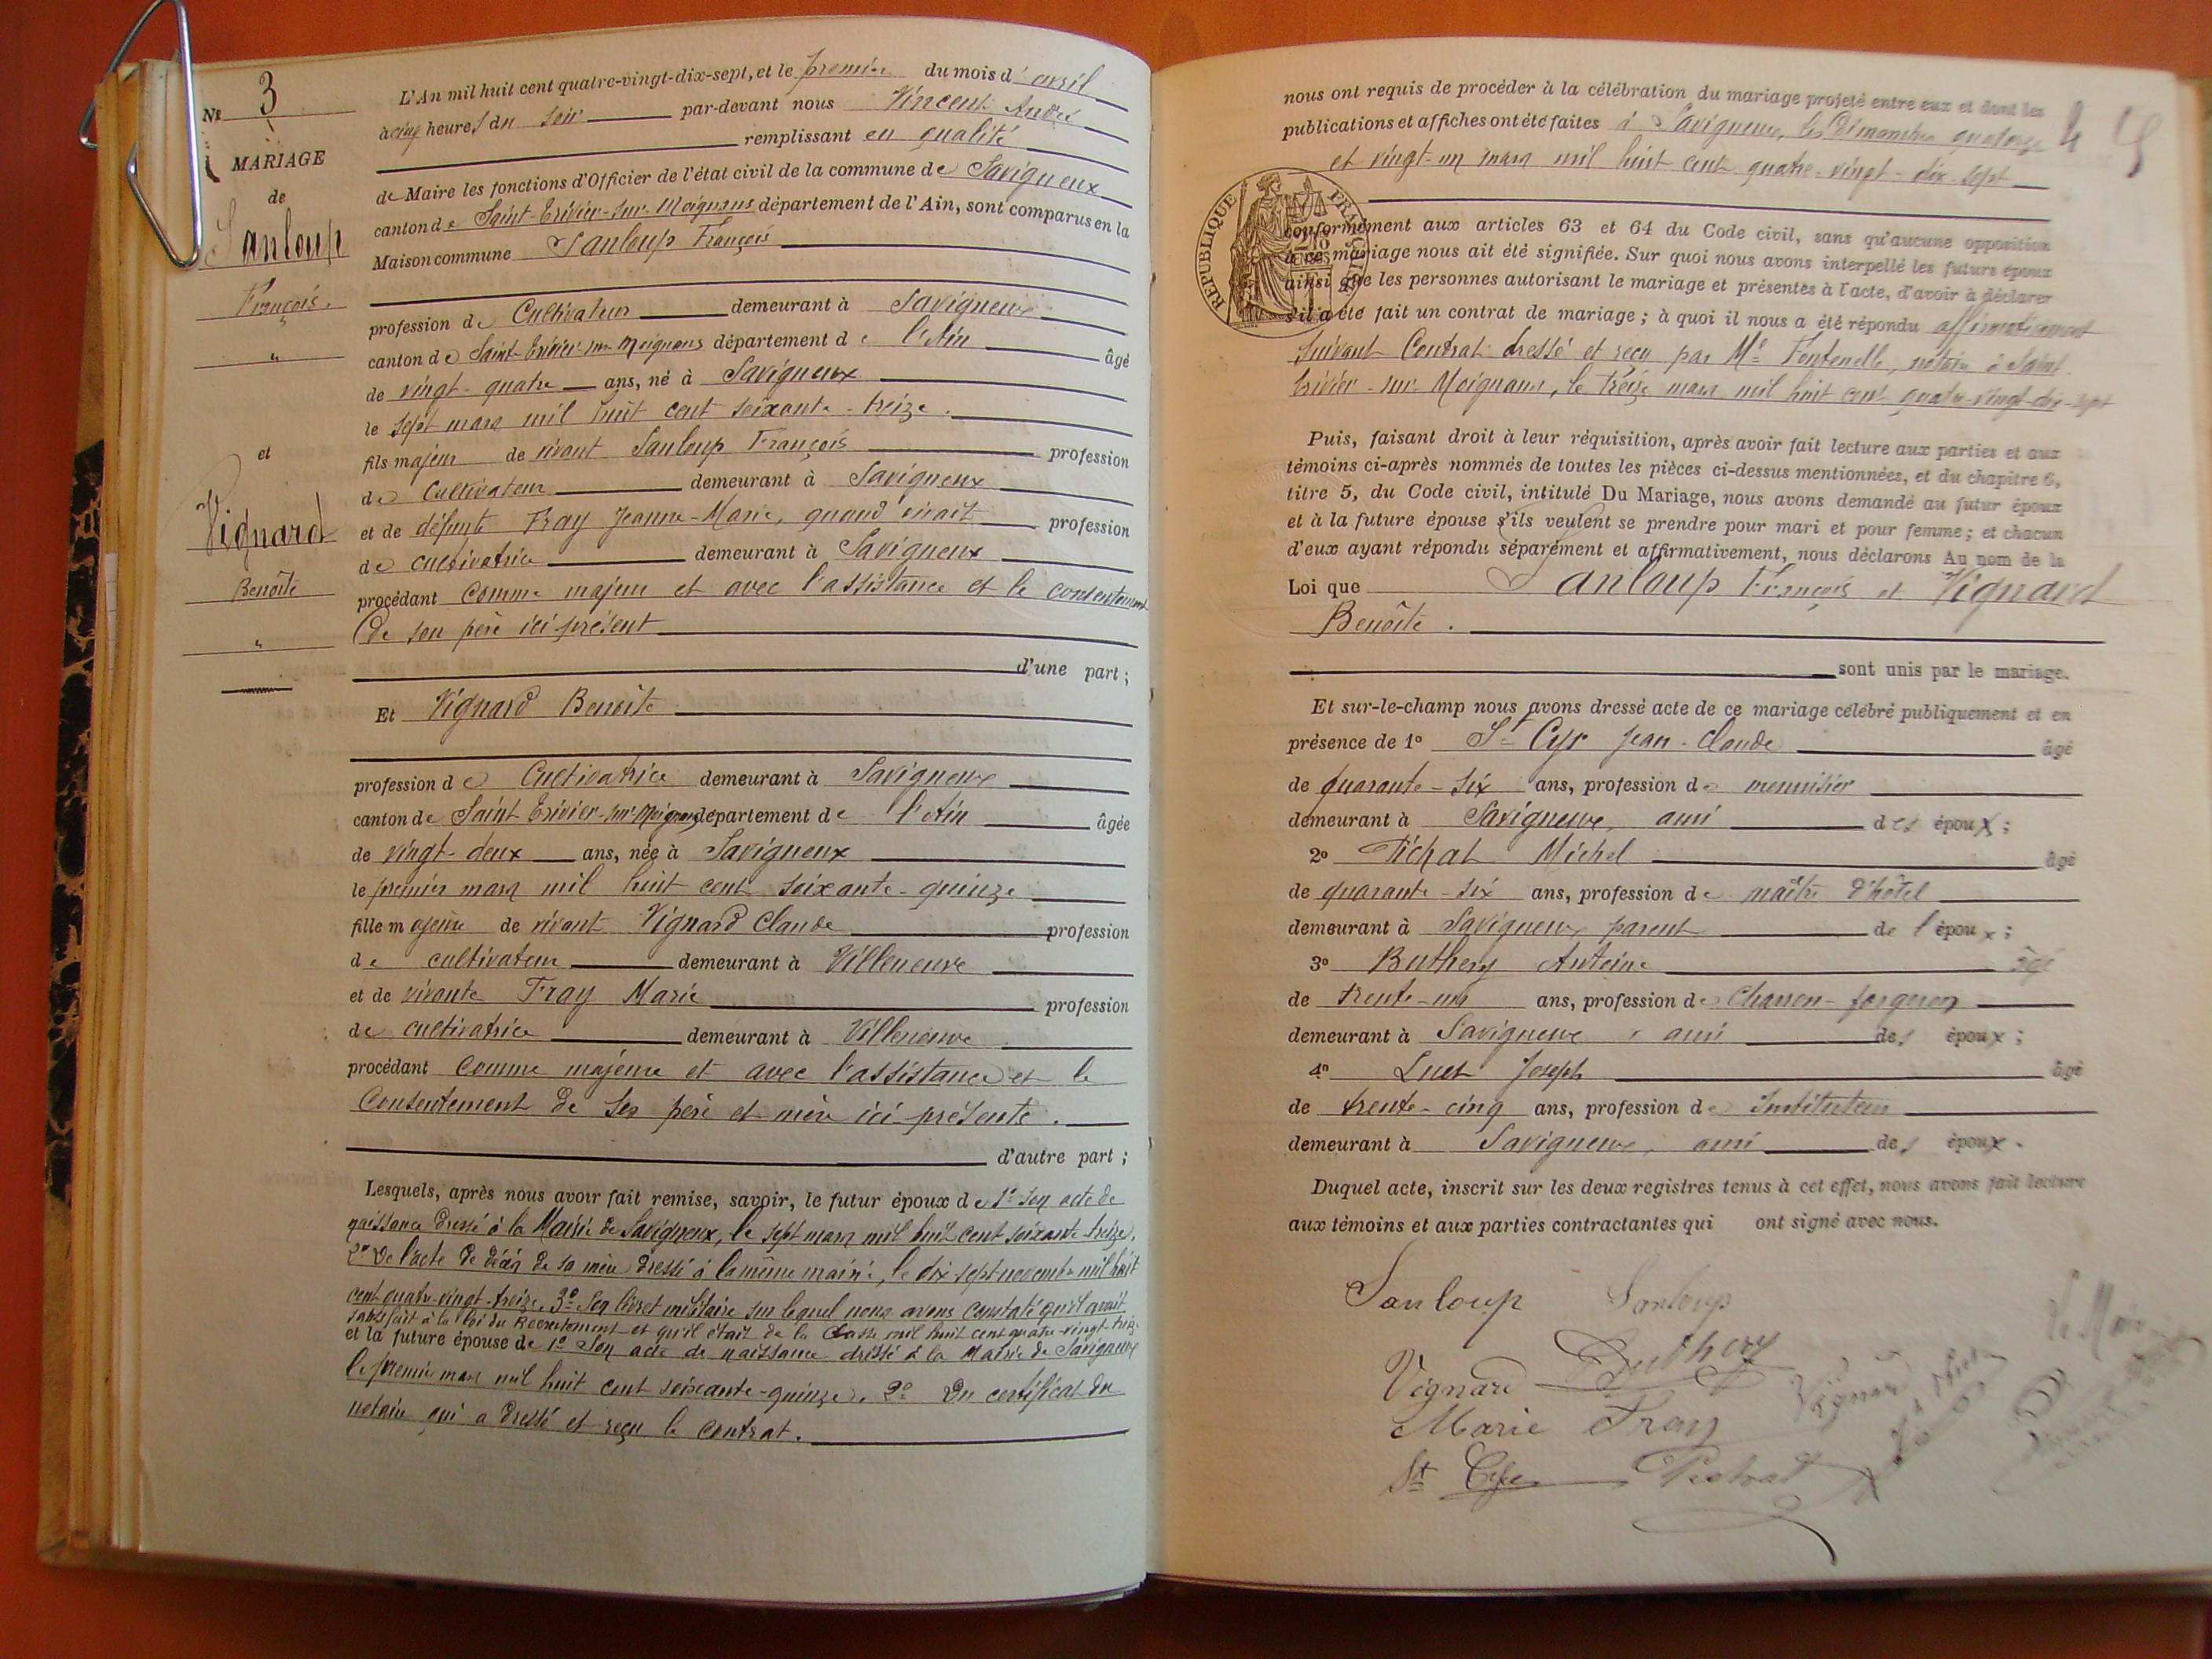 Nº 3
MARIAGE
de
Sanloup
François.
"
et
Vignard
Benoîte
"
L'An mil huit cent quatre-vingt-dix-sept, et le premier du mois d'avril
à cinq heures du soir par-devant nous Vincent André
remplissant en qualité
de Maire les fonctions d'Officier de l'état civil de la commune de Savigneux
canton de Saint-Trivier-sur-Moignans département de l'Ain, sont comparus en la
Maison commune Sanloup François
profession de Cultivateur demeurant à Savigneux
canton de Saint-Trivier-sur-Moignans département de l'Ain âgé
de vingt-quatre ans, né à Savigneux
le sept mars mil huit cent soixante-treize.
fils majeur de vivant Sanloup François profession
de Cultivateur demeurant à Savigneux
et de défunte Fray Jeanne-Marie, quand vivait profession
de cultivatrice demeurant à Savigneux
procédant comme majeur et avec l'assistance et le consentement
de son père ici présent
d'une part ;
Et Vignard Benoîte
profession de Cultivatrice demeurant à Savigneux
canton de Saint Trivier-sur-Moignans département de l'Ain âgée
de vingt-deux ans, née à Savigneux
le premier mars mil huit cent soixante-quinze
fille majeure de vivant Vignard Claude profession
de cultivateur demeurant à Villeneuve
et de vivante Fray Marie profession
de cultivatrice demeurant à Villeneuve
procédant comme majeure et avec l'assistance et le
Consentement de ses père et mère ici présents.
d'autre part ;
Lesquels, après nous avoir fait remise, savoir, le futur époux de 1º Son acte de
naissance dressé à la Mairie de Savigneux, le sept mars mil huit cent soixante-treize.
2º De l'acte de décès de sa mère dressé à la même mairie, le dix sept novembre mil huit
cent quatre-vingt-treize. 3º Son livret militaire sur lequel nous avons constaté qu'il avait
satisfait à la loi du Recrutement et qu'il était de la Classe mil huit cent quatre-vingt-treize.
et la future épouse de 1º Son acte de naissance dressé à la Mairie de Savigneux
le premier mars mil huit cent soixante-quinze. 2º Du certificat du
notaire qui a dressé et reçu le contrat.
nous ont requis de procéder à la célébration du mariage projeté entre eux et dont les
publications et affiches ont été faites à Savigneux, les Dimanches quatorze
et vingt-un mars mil huit cent quatre-vingt-dix-sept
RÉPUBLIQUE
conformément aux articles 63 et 64 du Code civil, sans qu'aucune opposition
à ce mariage nous ait été signifiée. Sur quoi nous avons interpellé les futurs époux
ainsi que les personnes autorisant le mariage et présentes à l'acte, d'avoir à déclarer
s'il a été fait un contrat de mariage ; à quoi il nous a été répondu affirmativement
suivant Contrat dressé et reçu par Me Fontenelle, notaire à Saint
Trivier-sur-Moignans, le treize mars mil huit cent quatre-vingt-dix-sept
Puis, faisant droit à leur réquisition, après avoir fait lecture aux parties et aux
témoins ci-après nommés de toutes les pièces ci-dessus mentionnées, et du chapitre 6,
titre 5, du Code civil, intitulé Du Mariage, nous avons demandé au futur époux
et à la future épouse s'ils veulent se prendre pour mari et pour femme ; et chacun
d'eux ayant répondu séparément et affirmativement, nous déclarons Au nom de la
Loi que Sanloup François et Vignard
Benoîte.
sont unis par le mariage.
Et sur-le-champ nous avons dressé acte de ce mariage célébré publiquement et en
présence de 1º St Cyr Jean-Claude âgé
de quarante-six ans, profession de menuisier
demeurant à Savigneux, ami des époux ;
2º Pichat Michel âgé
de quarante-six ans, profession de maître d'hôtel
demeurant à Savigneux parent de l'époux ;
3º Buthery Antoine âgé
de trente-un ans, profession de Charron-forgeron
demeurant à Savigneux, ami des époux ;
4º Luet Joseph âgé
de trente-cinq ans, profession de Instituteur
demeurant à Savigneux, ami des époux.
Duquel acte, inscrit sur les deux registres tenus à cet effet, nous avons fait lecture
aux témoins et aux parties contractantes qui ont signé avec nous.
Sanloup Sanloup
Le Maire
Vignard Buthery Vignard
Marie Fray
St Cyr Pichat